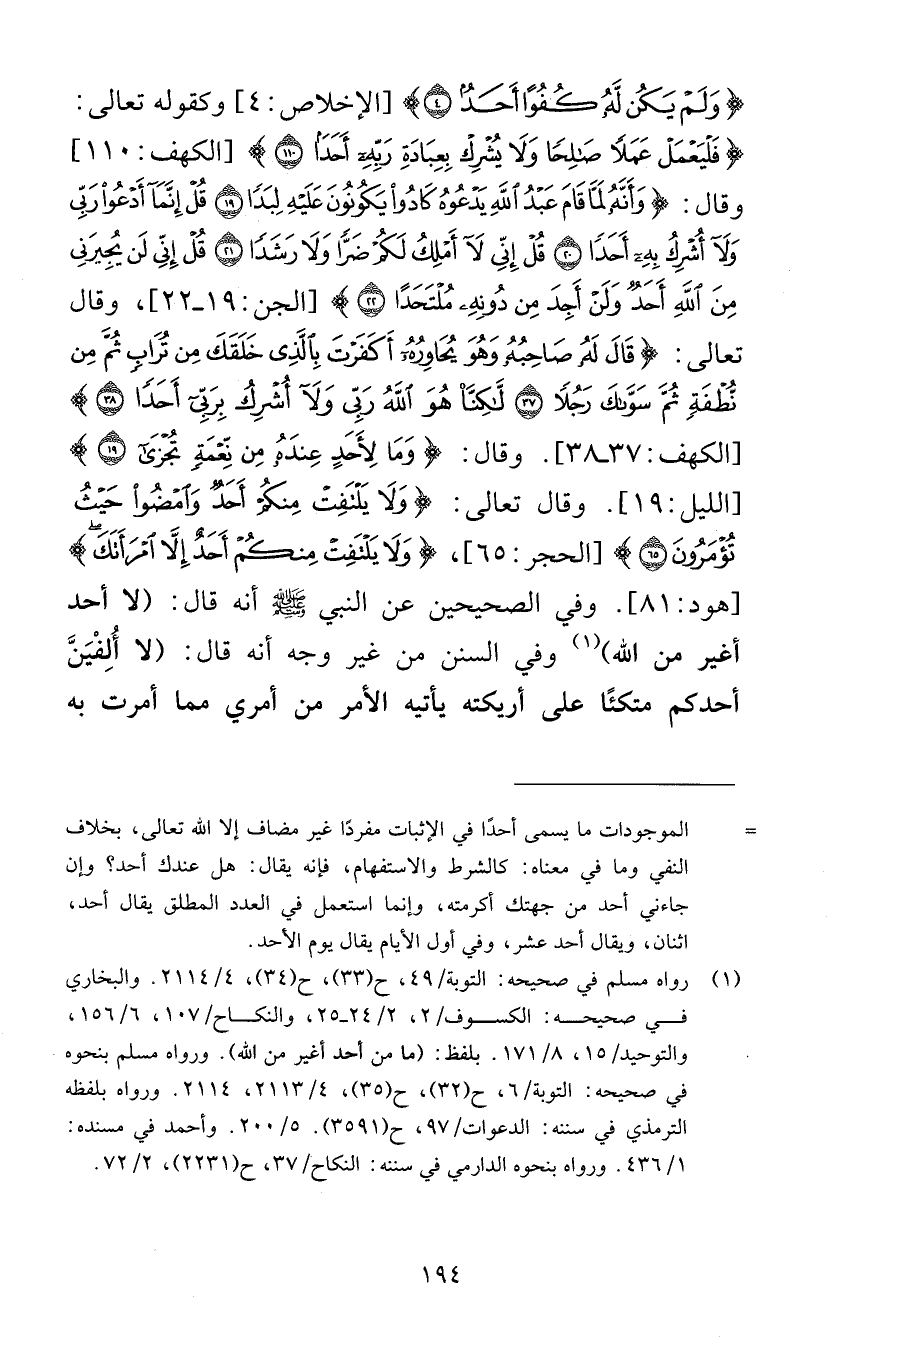 ﴿ وَلَمْ يَكُن لَّهُ كُفُوًا أَحَدٌ ٤ ﴾ [الإخلاص: ٤] وكقوله تعالى:
﴿ فَلْيَعْمَلْ عَمَلًا صَالِحًا وَلَا يُشْرِكْ بِعِبَادَةِ رَبِّهِ أَحَدًا ١١٠ ﴾ [الكهف: ١١٠]
وقال: ﴿ وَأَنَّهُ لَمَّا قَامَ عَبْدُ اللَّهِ يَدْعُوهُ كَادُوا يَكُونُونَ عَلَيْهِ لِبَدًا ١٩ قُلْ إِنَّمَا أَدْعُوا رَبِّي
وَلَا أُشْرِكُ بِهِ أَحَدًا ٢٠ قُلْ إِنِّي لَا أَمْلِكُ لَكُمْ ضَرًّا وَلَا رَشَدًا ٢١ قُلْ إِنِّي لَن يُجِيرَنِي
مِنَ اللَّهِ أَحَدٌ وَلَنْ أَجِدَ مِن دُونِهِ مُلْتَحَدًا ٢٢ ﴾ [الجن: ١٩ـ٢٢]، وقال
تعالى: ﴿ قَالَ لَهُ صَاحِبُهُ وَهُوَ يُحَاوِرُهُ أَكَفَرْتَ بِالَّذِي خَلَقَكَ مِن تُرَابٍ ثُمَّ مِن
نُّطْفَةٍ ثُمَّ سَوَّاكَ رَجُلًا ٣٧ لَّاكِنَّا هُوَ اللَّهُ رَبِّي وَلَا أُشْرِكُ بِرَبِّي أَحَدًا ٣٨ ﴾
[الكهف: ٣٧ـ٣٨]. وقال: ﴿ وَمَا لِأَحَدٍ عِندَهُ مِن نِّعْمَةٍ تُجْزَى ١٩ ﴾
[الليل: ١٩]. وقال تعالى: ﴿ وَلَا يَلْتَفِتْ مِنكُمْ أَحَدٌ وَامْضُوا حَيْثُ
تُؤْمَرُونَ ٦٥ ﴾ [الحجر: ٦٥]، ﴿ وَلَا يَلْتَفِتْ مِنكُمْ أَحَدٌ إِلَّا امْرَأَتَكَ ﴾
[هود: ٨١]. وفي الصحيحين عن النبي ﷺ أنه قال: (لا أحد
أغير من الله)(١) وفي السنن من غير وجه أنه قال: (لا أُلفِيَنَّ
أحدكم متكئًا على أريكته يأتيه الأمر من أمري مما أمرت به
= الموجودات ما يسمى أحدًا في الإثبات مفردًا غير مضاف إلا الله تعالى، بخلاف
النفي وما في معناه: كالشرط والاستفهام، فإنه يقال: هل عندك أحد؟ وإن
جاءني أحد من جهتك أكرمته، وإنما استعمل في العدد المطلق يقال أحد،
اثنان، ويقال أحد عشر، وفي أول الأيام يقال يوم الأحد.
(١) رواه مسلم في صحيحه: التوبة/٤٩، ح(٣٣)، ح(٣٤)، ٤/ ٢١١٤. والبخاري
فـي صحيحـه: الكسـوف/٢، ٢/ ٢٤ـ٢٥، والنكـاح/١٠٧، ٦/ ١٥٦،
والتوحيد/١٥، ٨/ ١٧١. بلفظ: (ما من أحد أغير من الله). ورواه مسلم بنحوه
في صحيحه: التوبة/٦، ح(٣٢)، ح(٣٥)، ٤/ ٢١١٣، ٢١١٤. ورواه بلفظه
الترمذي في سننه: الدعوات/٩٧، ح(٣٥٩١). ٥/ ٢٠٠. وأحمد في مسنده:
١/ ٤٣٦. ورواه بنحوه الدارمي في سننه: النكاح/٣٧، ح(٢٢٣١)، ٢/ ٧٢.
١٩٤